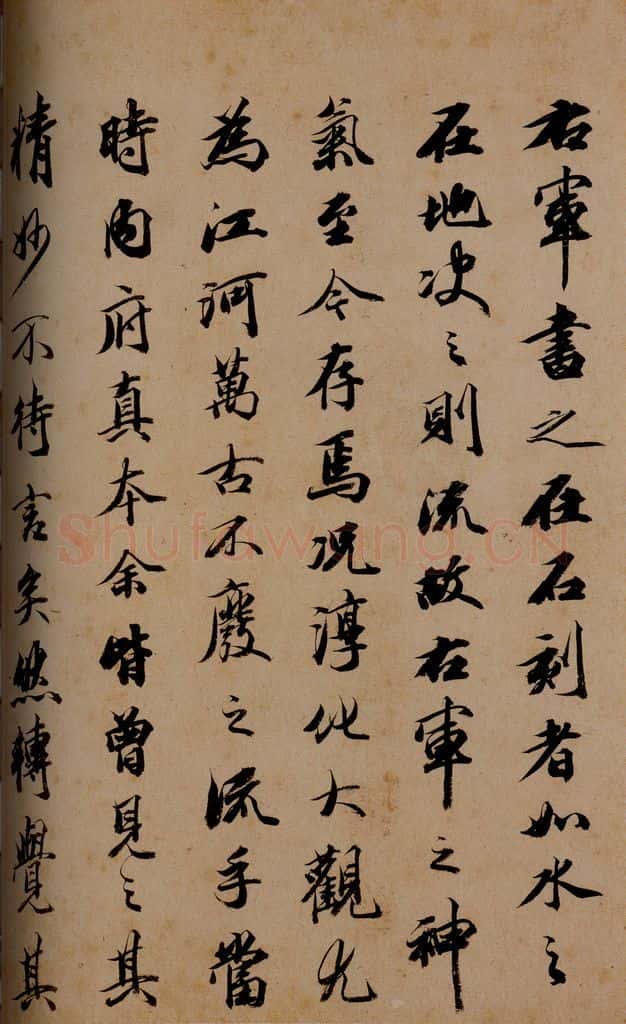 右軍書之在石刻者如水之
在地决之則流故右軍之神
氣至今存焉况淳化大觀尤
為江河萬古不廢之流乎當
時內府真本余皆曾見之其
精妙不待言矣然轉覺其
Shufawang.CN